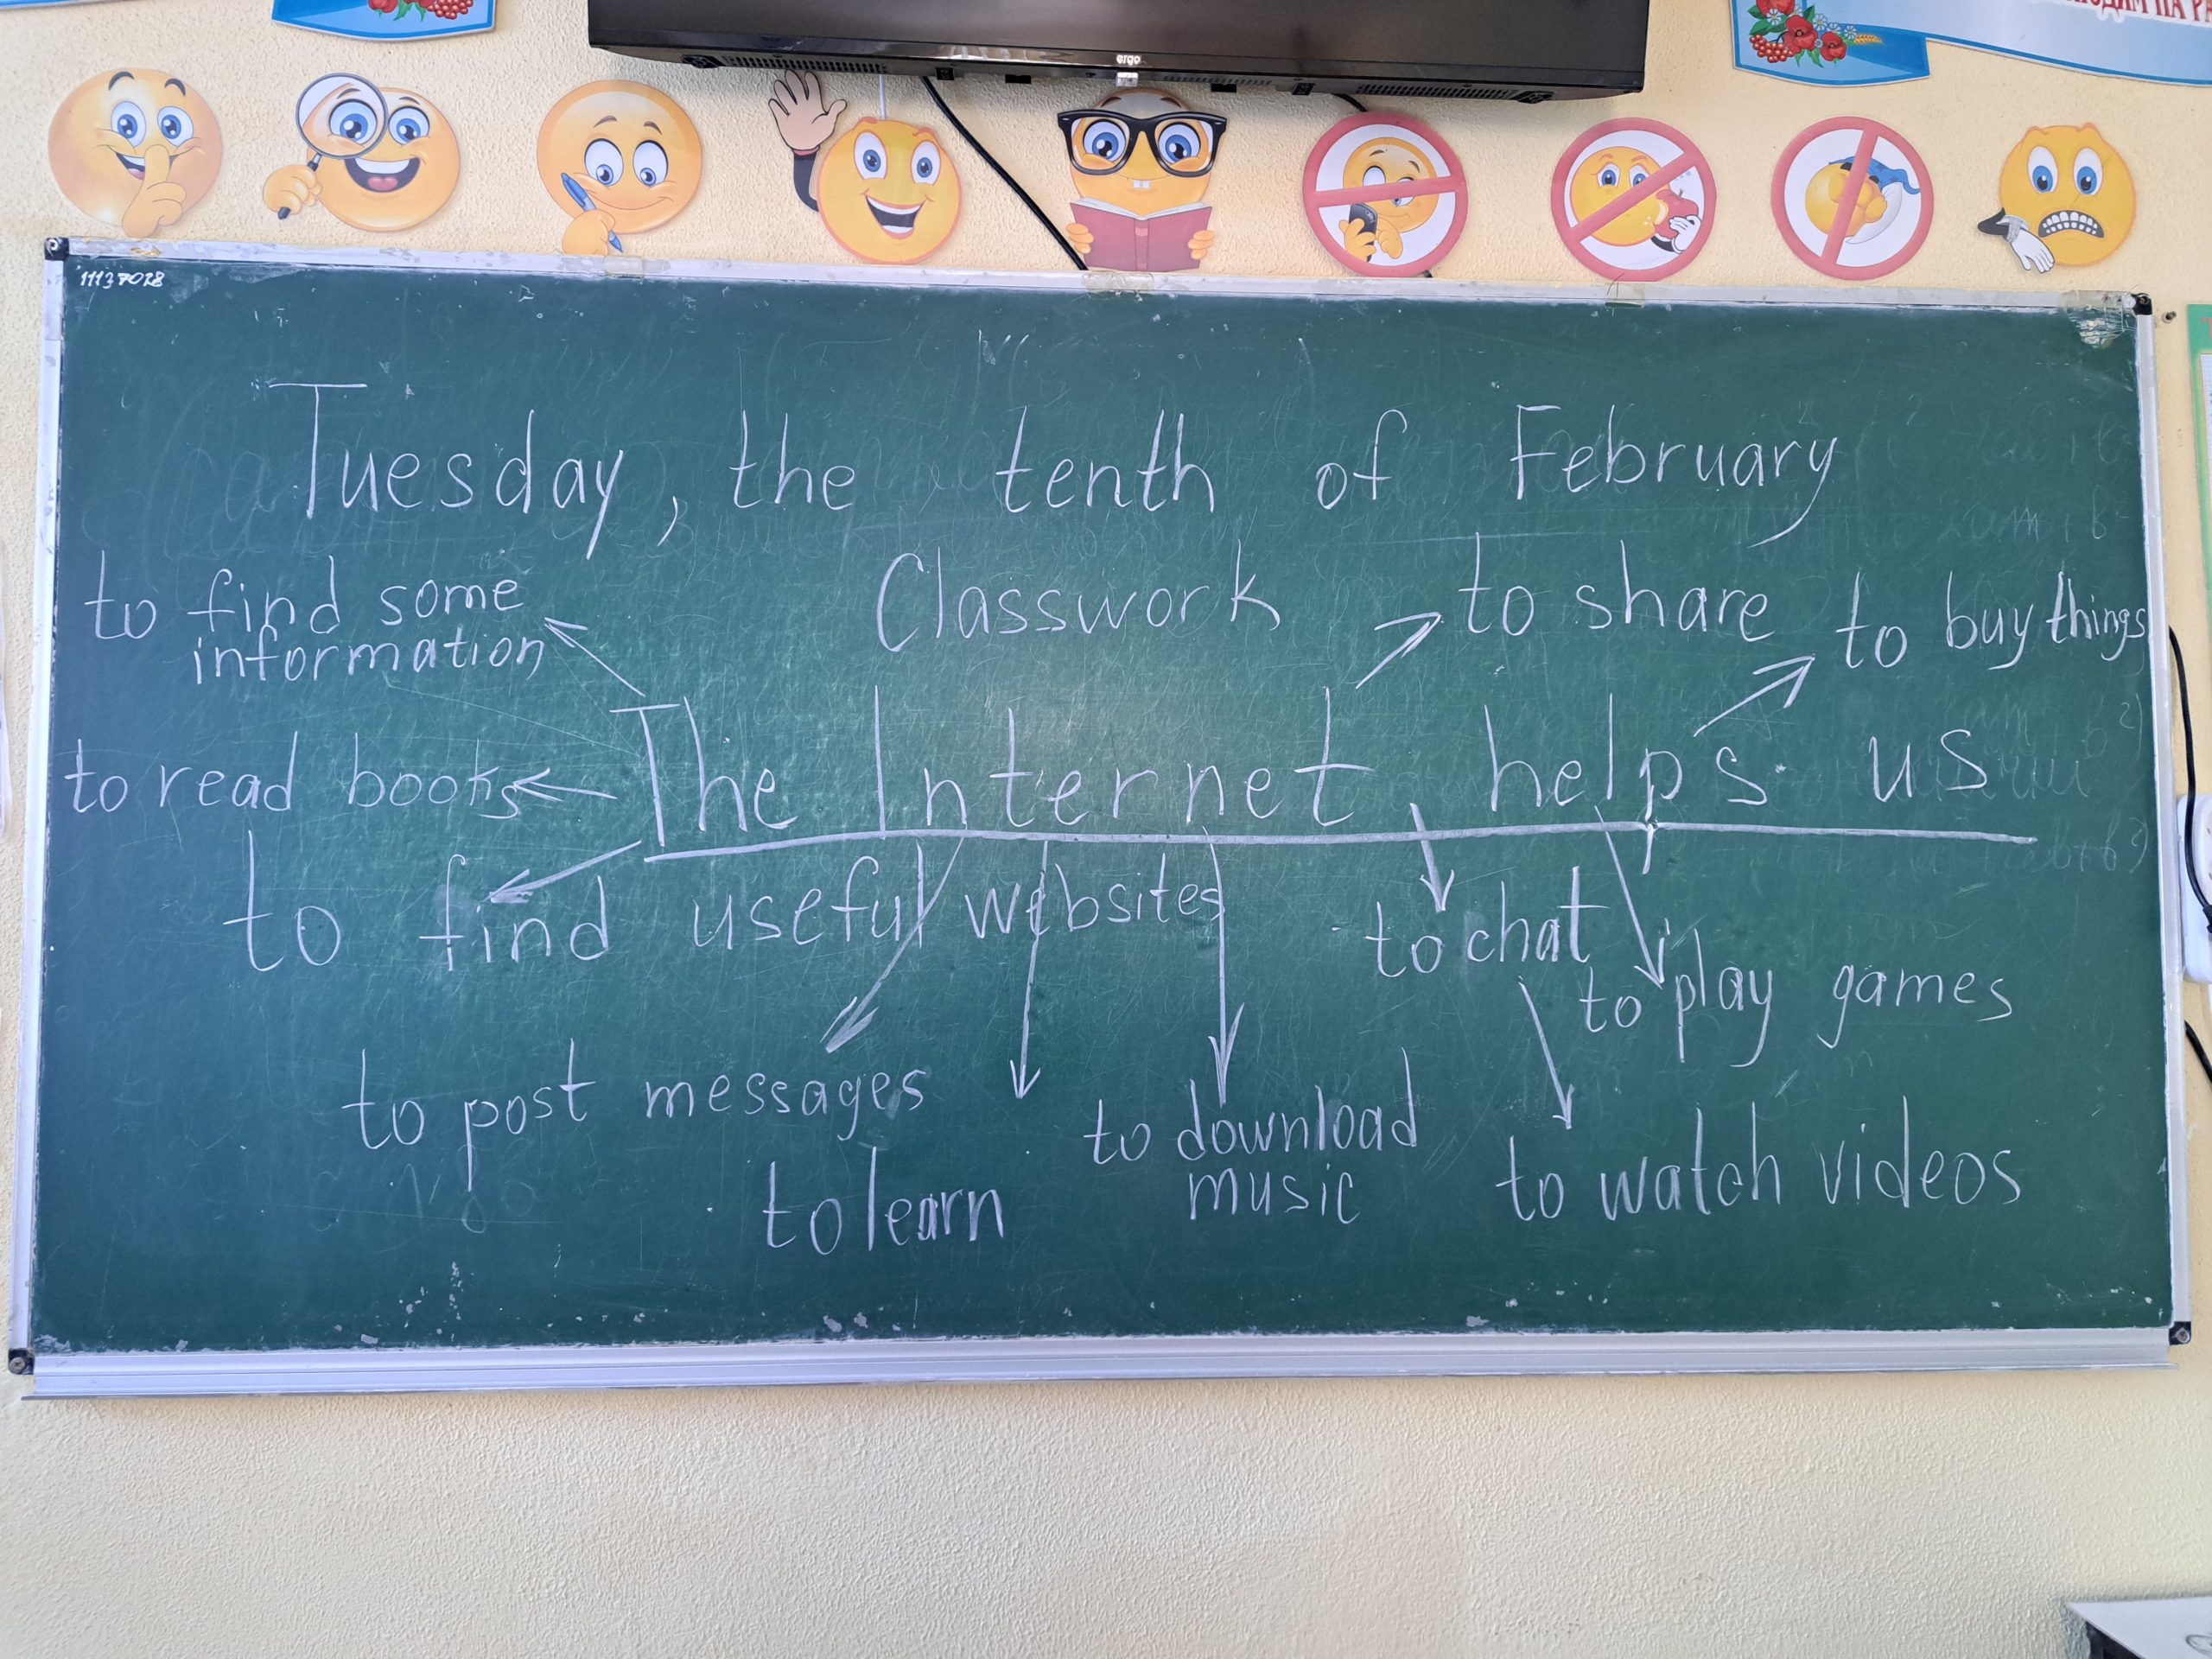 ergo
НА
11137028
Tuesday, the tenth of February
Classwork
to find some
information
to share
to buy things
The Internet helps us
to read books
to find useful websites
to chat
to play games
to post messages
to download
music
to learn
to watch videos